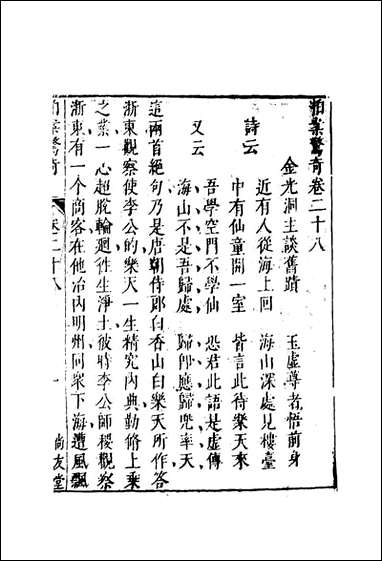 拍案驚奇卷二十八
金光洞主談舊蹟　玉虛尊者悟前身
詩云
近有人從海上回　海山深處見樓臺
中有仙童開一室　皆言此待樂天來
又云
吾學空門不學仙　恐君此語是虛傳
海山不是吾歸處　歸即應歸兜率天
這兩首絕句乃是唐朝侍郎白香山白樂天所作答
浙東觀察使李公的樂天一生精究內典勤修上乗
之業一心超脫輪廻徃生淨土彼時李公師稷觀察
浙東有一个商客在他治內明州同衆下海遭風飄
拍案驚奇　卷二十八　一　尚友堂